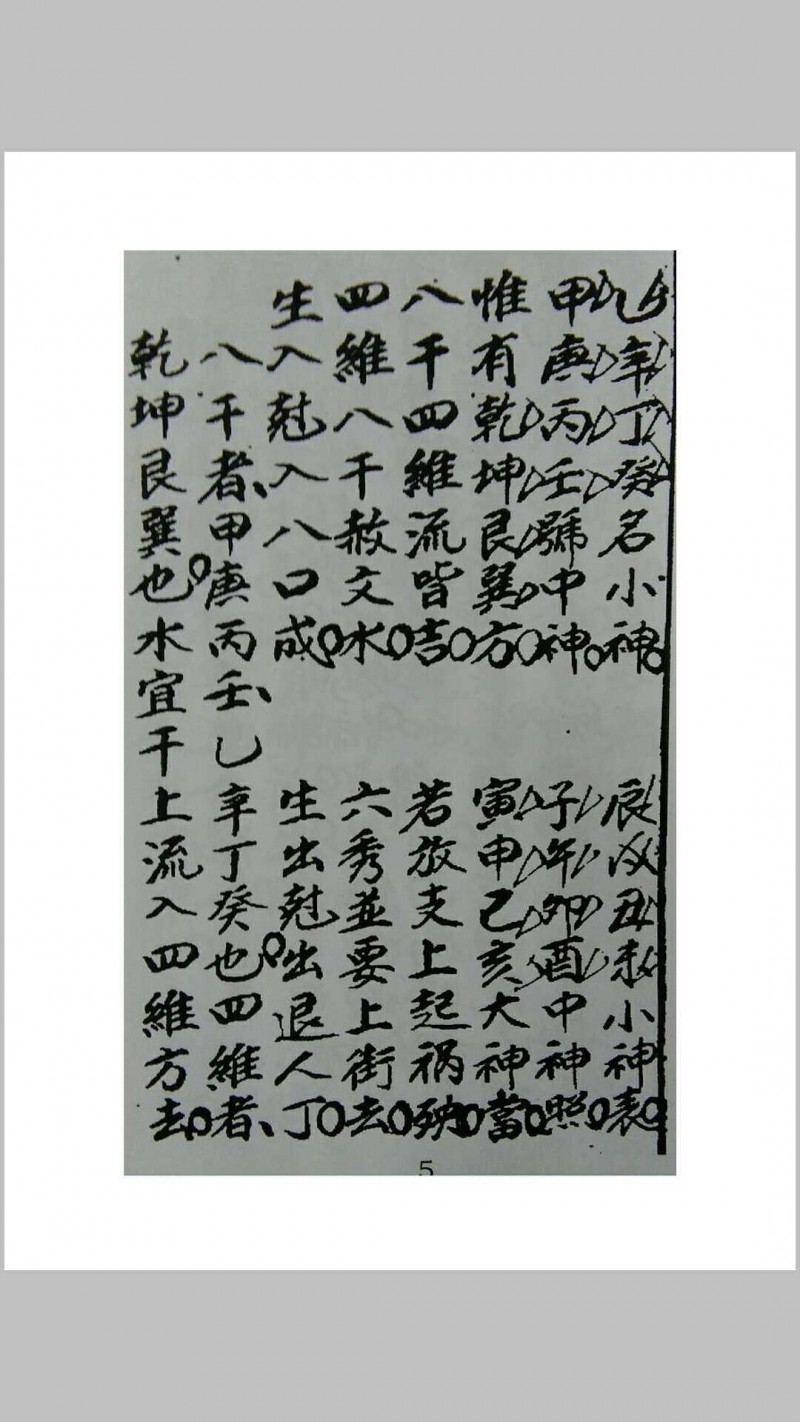 乙辛丁癸名小神。 辰戌丑未小神表。
甲庚丙壬號中神。 子午卯酉中神照。
惟有乾坤艮巽方。 寅申巳亥大神當。
八干四維流皆吉。 若放支上起禍殃。
四維八干赦文水。 六秀並要上街去。
生入尅入八口成。 生出尅出退人丁。
八干者、甲庚丙壬、乙辛丁癸也。四維者、
乾坤艮巽也。水宜干上流入四維方去。
5